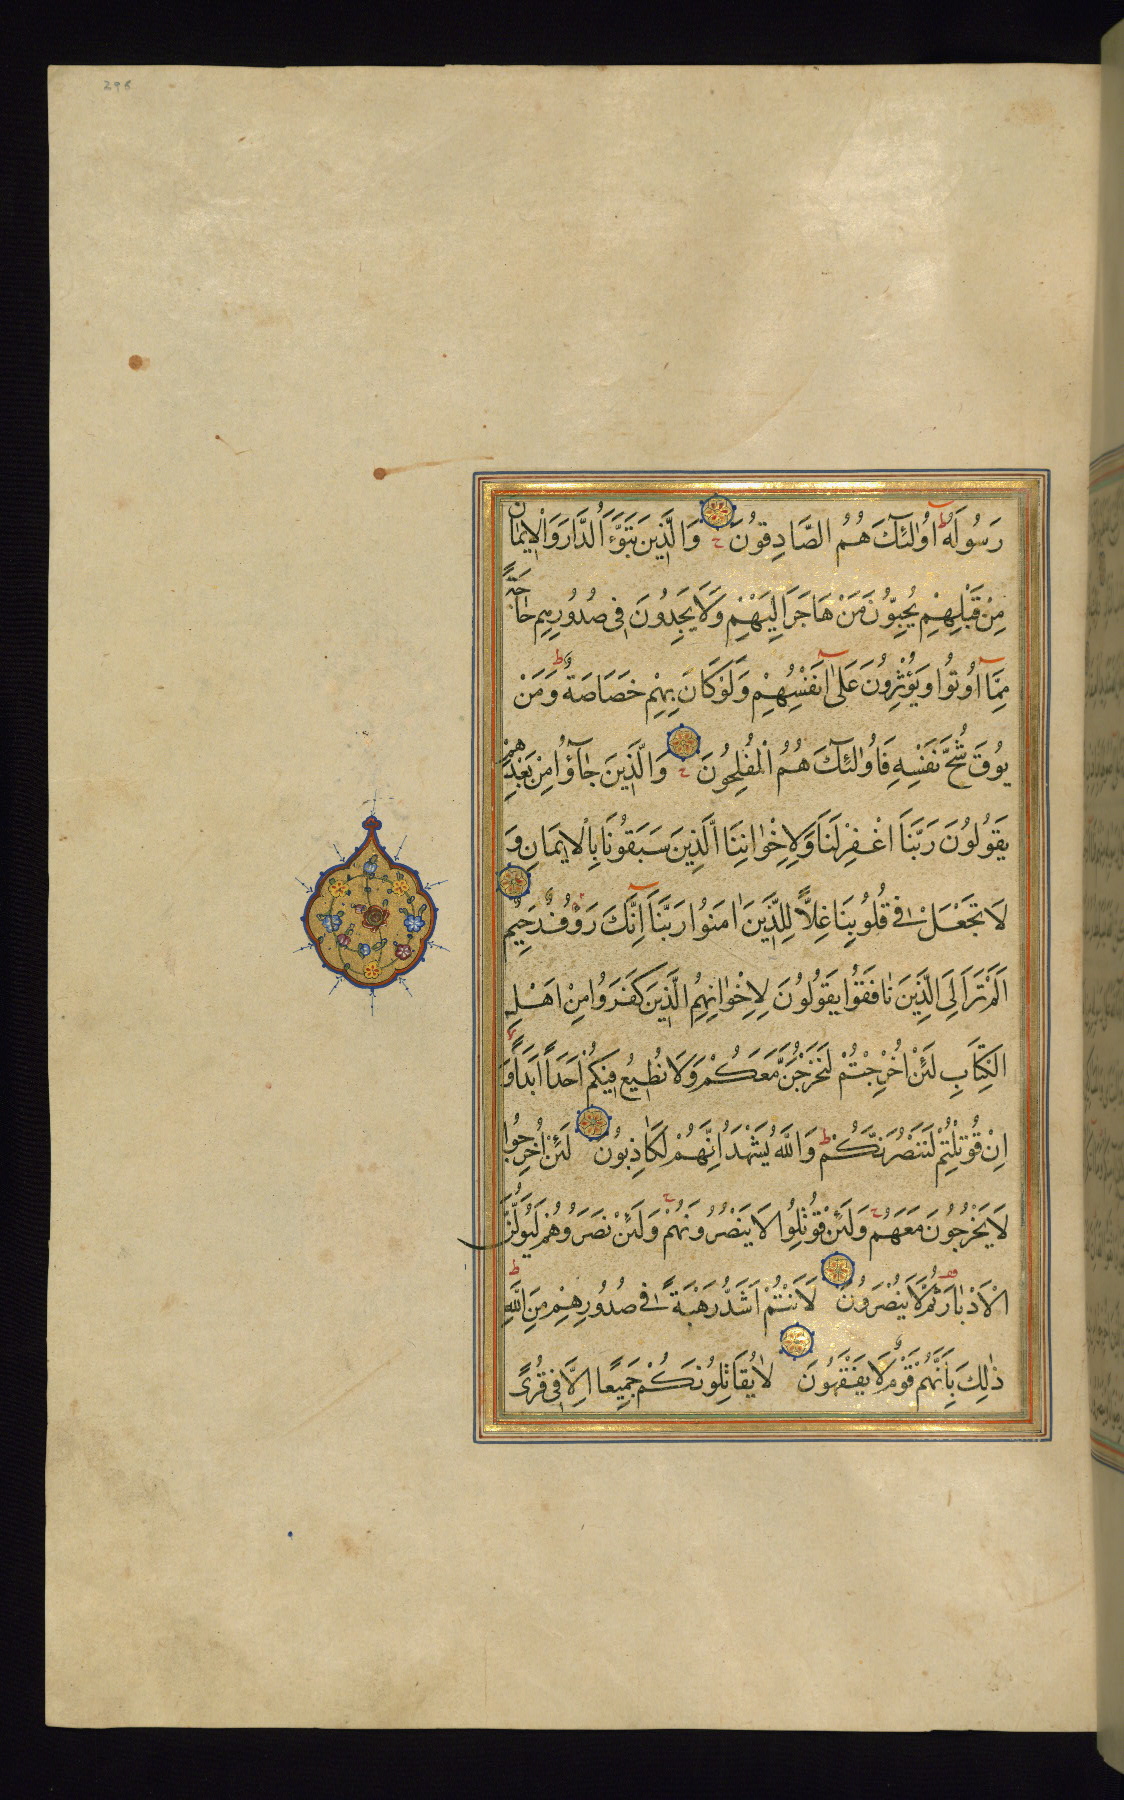 298
رَسُولَهُ اُولٰئِكَ هُمُ الصَّادِقُونَ وَالَّذِينَ تَبَوَّءُ الدَّارَ وَالْاِيمَانَ
مِنْ قَبْلِهِمْ يُحِبُّونَ مَنْ هَاجَرَ اِلَيْهِمْ وَلَا يَجِدُونَ فِى صُدُورِهِمْ حَاجَةً
مِمَّا اُوتُوا وَيُؤْثِرُونَ عَلٰى اَنْفُسِهِمْ وَلَوْ كَانَ بِهِمْ خَصَاصَةٌ وَمَنْ
يُوقَ شُحَّ نَفْسِهِ فَاُولٰئِكَ هُمُ الْمُفْلِحُونَ وَالَّذِينَ جَاؤُا مِنْ بَعْدِهِمْ
يَقُولُونَ رَبَّنَا اغْفِرْ لَنَا وَلِاِخْوَانِنَا الَّذِينَ سَبَقُونَا بِالْاِيمَانِ وَ
لَا تَجْعَلْ فِى قُلُوبِنَا غِلًّا لِلَّذِينَ اٰمَنُوا رَبَّنَا اِنَّكَ رَؤُفٌ رَحِيمٌ
اَلَمْ تَرَ اِلَى الَّذِينَ نَافَقُوا يَقُولُونَ لِاِخْوَانِهِمُ الَّذِينَ كَفَرُوا مِنْ اَهْلِ
الْكِتَابِ لَئِنْ اُخْرِجْتُمْ لَنَخْرُجَنَّ مَعَكُمْ وَلَا نُطِيعُ فِيكُمْ اَحَدًا اَبَدًا وَ
اِنْ قُوتِلْتُمْ لَنَنْصُرَنَّكُمْ وَاللّٰهُ يَشْهَدُ اِنَّهُمْ لَكَاذِبُونَ لَئِنْ اُخْرِجُوا
لَا يَخْرُجُونَ مَعَهُمْ وَلَئِنْ قُوتِلُوا لَا يَنْصُرُونَهُمْ وَلَئِنْ نَصَرُوهُمْ لَيُوَلُّنَّ
الْاَدْبَارَ ثُمَّ لَا يُنْصَرُونَ لَاَنْتُمْ اَشَدُّ رَهْبَةً فِى صُدُورِهِمْ مِنَ اللّٰهِ
ذٰلِكَ بِاَنَّهُمْ قَوْمٌ لَا يَفْقَهُونَ لَا يُقَاتِلُونَكُمْ جَمِيعًا اِلَّا فِى قُرًى